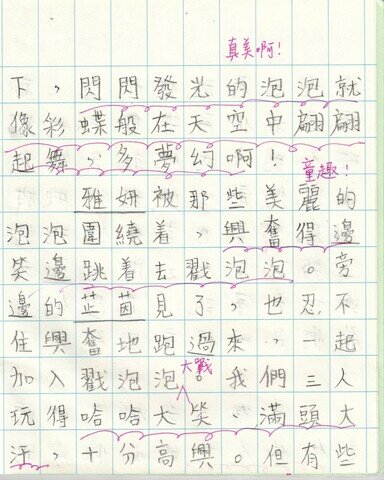 真美啊!
下，閃閃發光的泡泡就
像彩蝶般在天空中翩翩
起舞，多夢幻啊！
童趣!
雅妍被那些美麗的
泡泡圍繞着，興奮得邊
笑邊跳着去戳泡泡。旁
邊的芷茵見了，也忍不
住興奮地跑過來，一起
加入戳泡泡。我們三人
大戰
玩得哈哈大笑、滿頭大
汗，十分高興。但有些